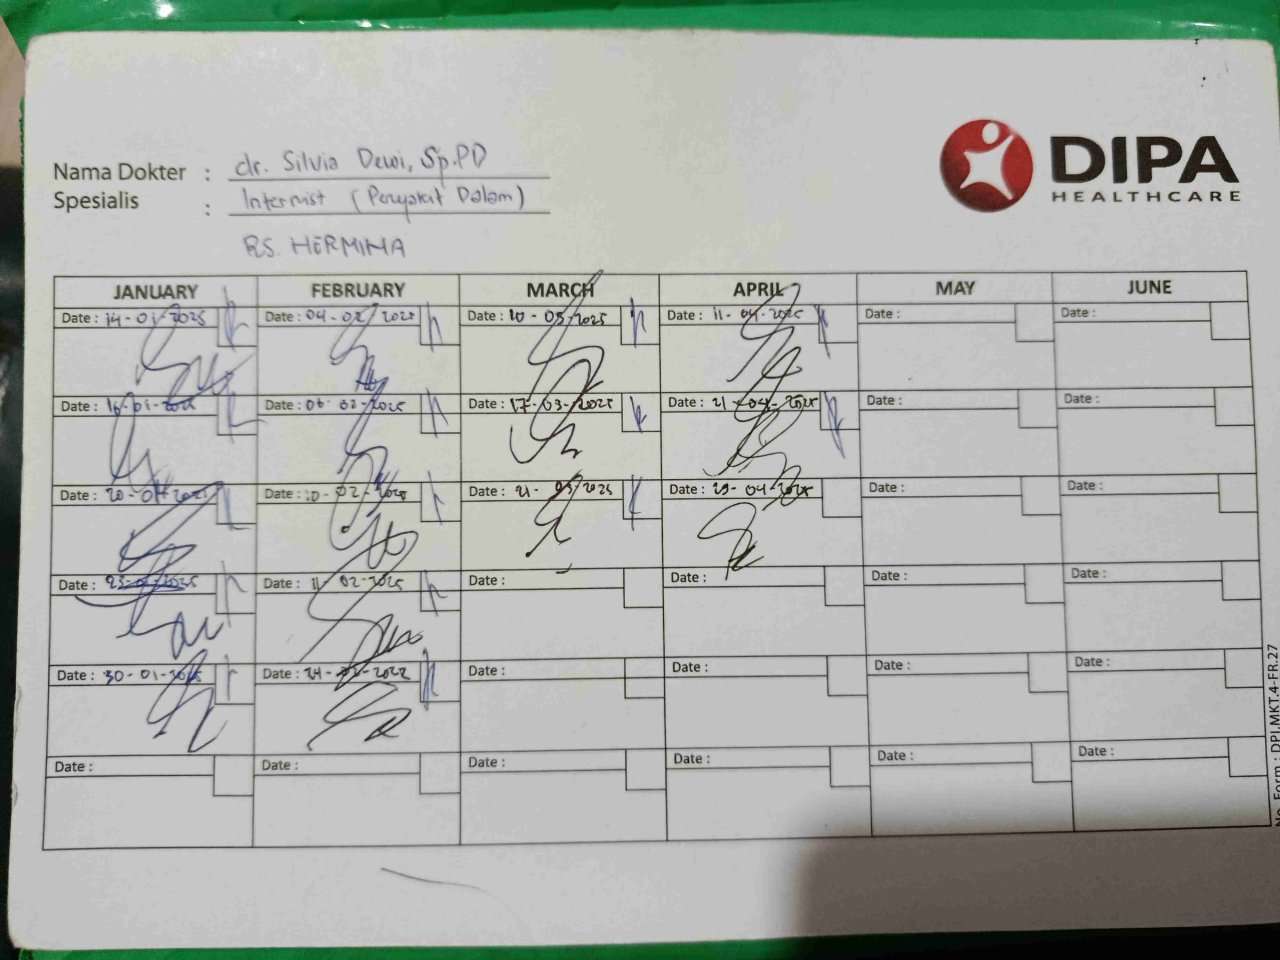 Nama Dokter : dr. Silvia Dewi, Sp.PD
Spesialis : Internist (Penyakit Dalam)
RS. HERMINA
DIPA
HEALTHCARE
JANUARY FEBRUARY MARCH APRIL MAY JUNE
Date : 14-01-2025 Date : 04-02-2025 Date : 10-03-2025 Date : 11-04-2025 Date : Date :
Date : 16-01-2025 Date : 06-02-2025 Date : 17-03-2025 Date : 21-04-2025 Date : Date :
Date : 20-01-2025 Date : 10-02-2025 Date : 21-03-2025 Date : 29-04-2025 Date : Date :
Date : 23-01-2025 Date : 11-02-2025 Date : Date : Date : Date :
Date : 30-01-2025 Date : 24-02-2022 Date : Date : Date : Date :
Date : Date : Date : Date : Date : Date :
No. Form : DPI.MKT.4-FR.27